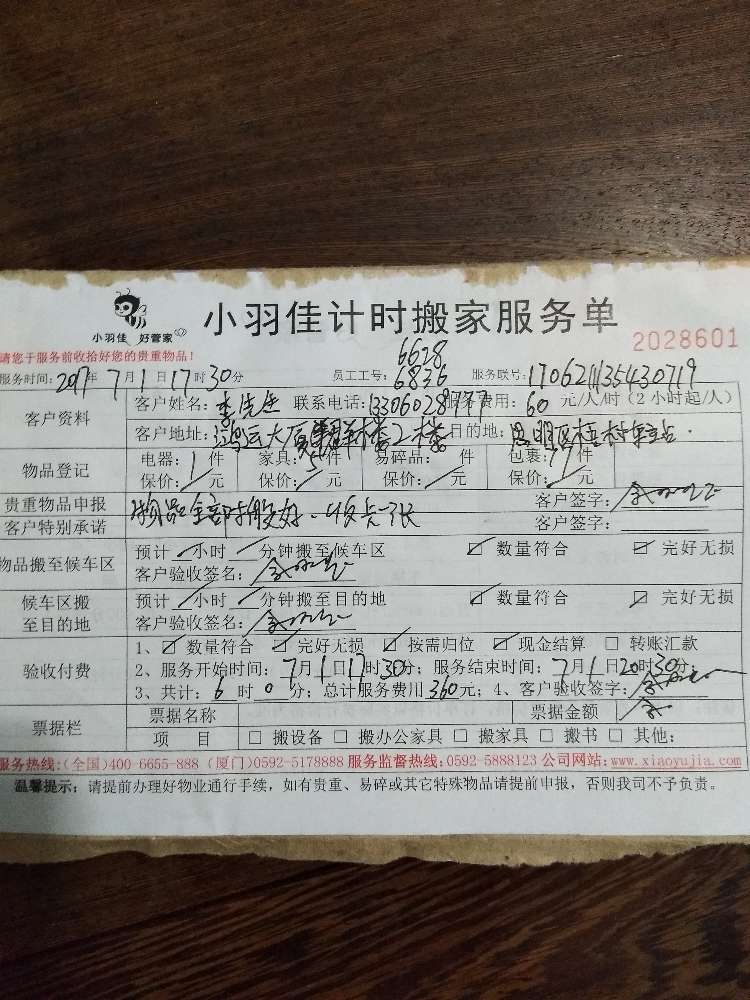 小羽佳 好管家
小羽佳计时搬家服务单
2028601
请您于服务前收拾好您的贵重物品！
6628
服务时间：2017年7月1日17时30分 员工工号：6836 服务联号：1706211135430719
客户资料 客户姓名：李先生 联系电话：13306028777 服务费用：60元/人/时（2小时起/人）
客户地址：鸿运大厦 2楼 目的地：思明区
物品登记 电器：1件 家具：5件 易碎品： 件 包裹： 件
保价：/元 保价：/元 保价：/元 保价：/元
贵重物品申报 物品全部 搬好.收 一张 客户签字：
客户特别承诺 客户签字：
物品搬至候车区 预计 小时 分钟搬至候车区 ☑ 数量符合 ☑ 完好无损
客户验收签名：
候车区搬至目的地 预计 小时 分钟搬至目的地 ☑ 数量符合 ☑ 完好无损
客户验收签名：
验收付费 1、☑ 数量符合 ☑ 完好无损 ☑ 按需归位 ☑ 现金结算 □ 转账汇款
2、服务开始时间：7月1日17时30分；服务结束时间：7月1日20时30分；
3、共计：6时0分；总计服务费用360元；4、客户验收签字：
票据栏 票据名称 票据金额
项 目 □ 搬设备 □ 搬办公家具 □ 搬家具 □ 搬书 □ 其他：
服务热线：(全国)400-6655-888 (厦门)0592-5178888 服务监督热线：0592-5888123 公司网站：www.xiaoyujia.com
温馨提示：请提前办理好物业通行手续，如有贵重、易碎或其它特殊物品请提前申报，否则我司不予负责。